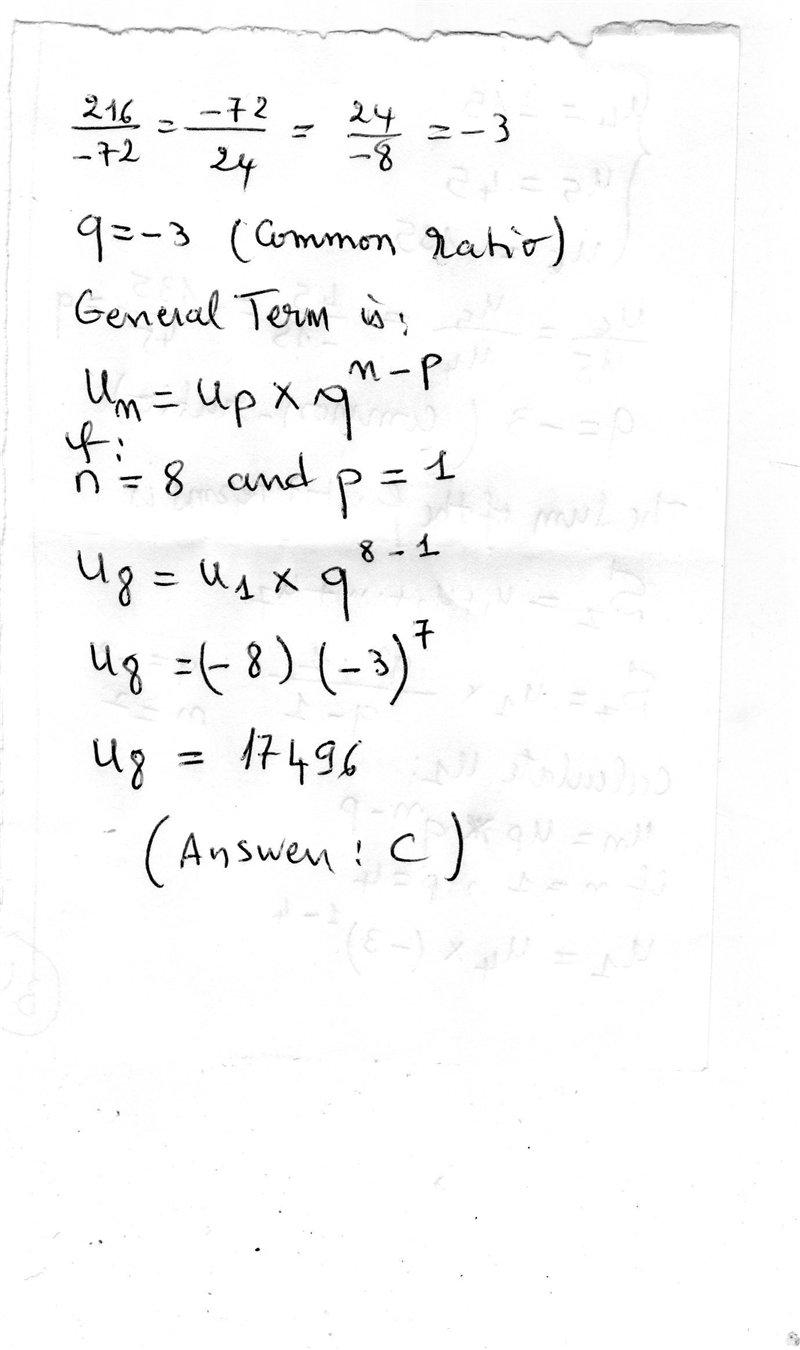 216/-72 = -72/24 = 24/-8 = -3
q = -3 (Common ratio)
General Term is:
Un = Up × q^n-p
if:
n = 8 and p = 1
U8 = U1 × q^8-1
U8 = (-8) (-3)^7
U8 = 17496
(Answer : C)